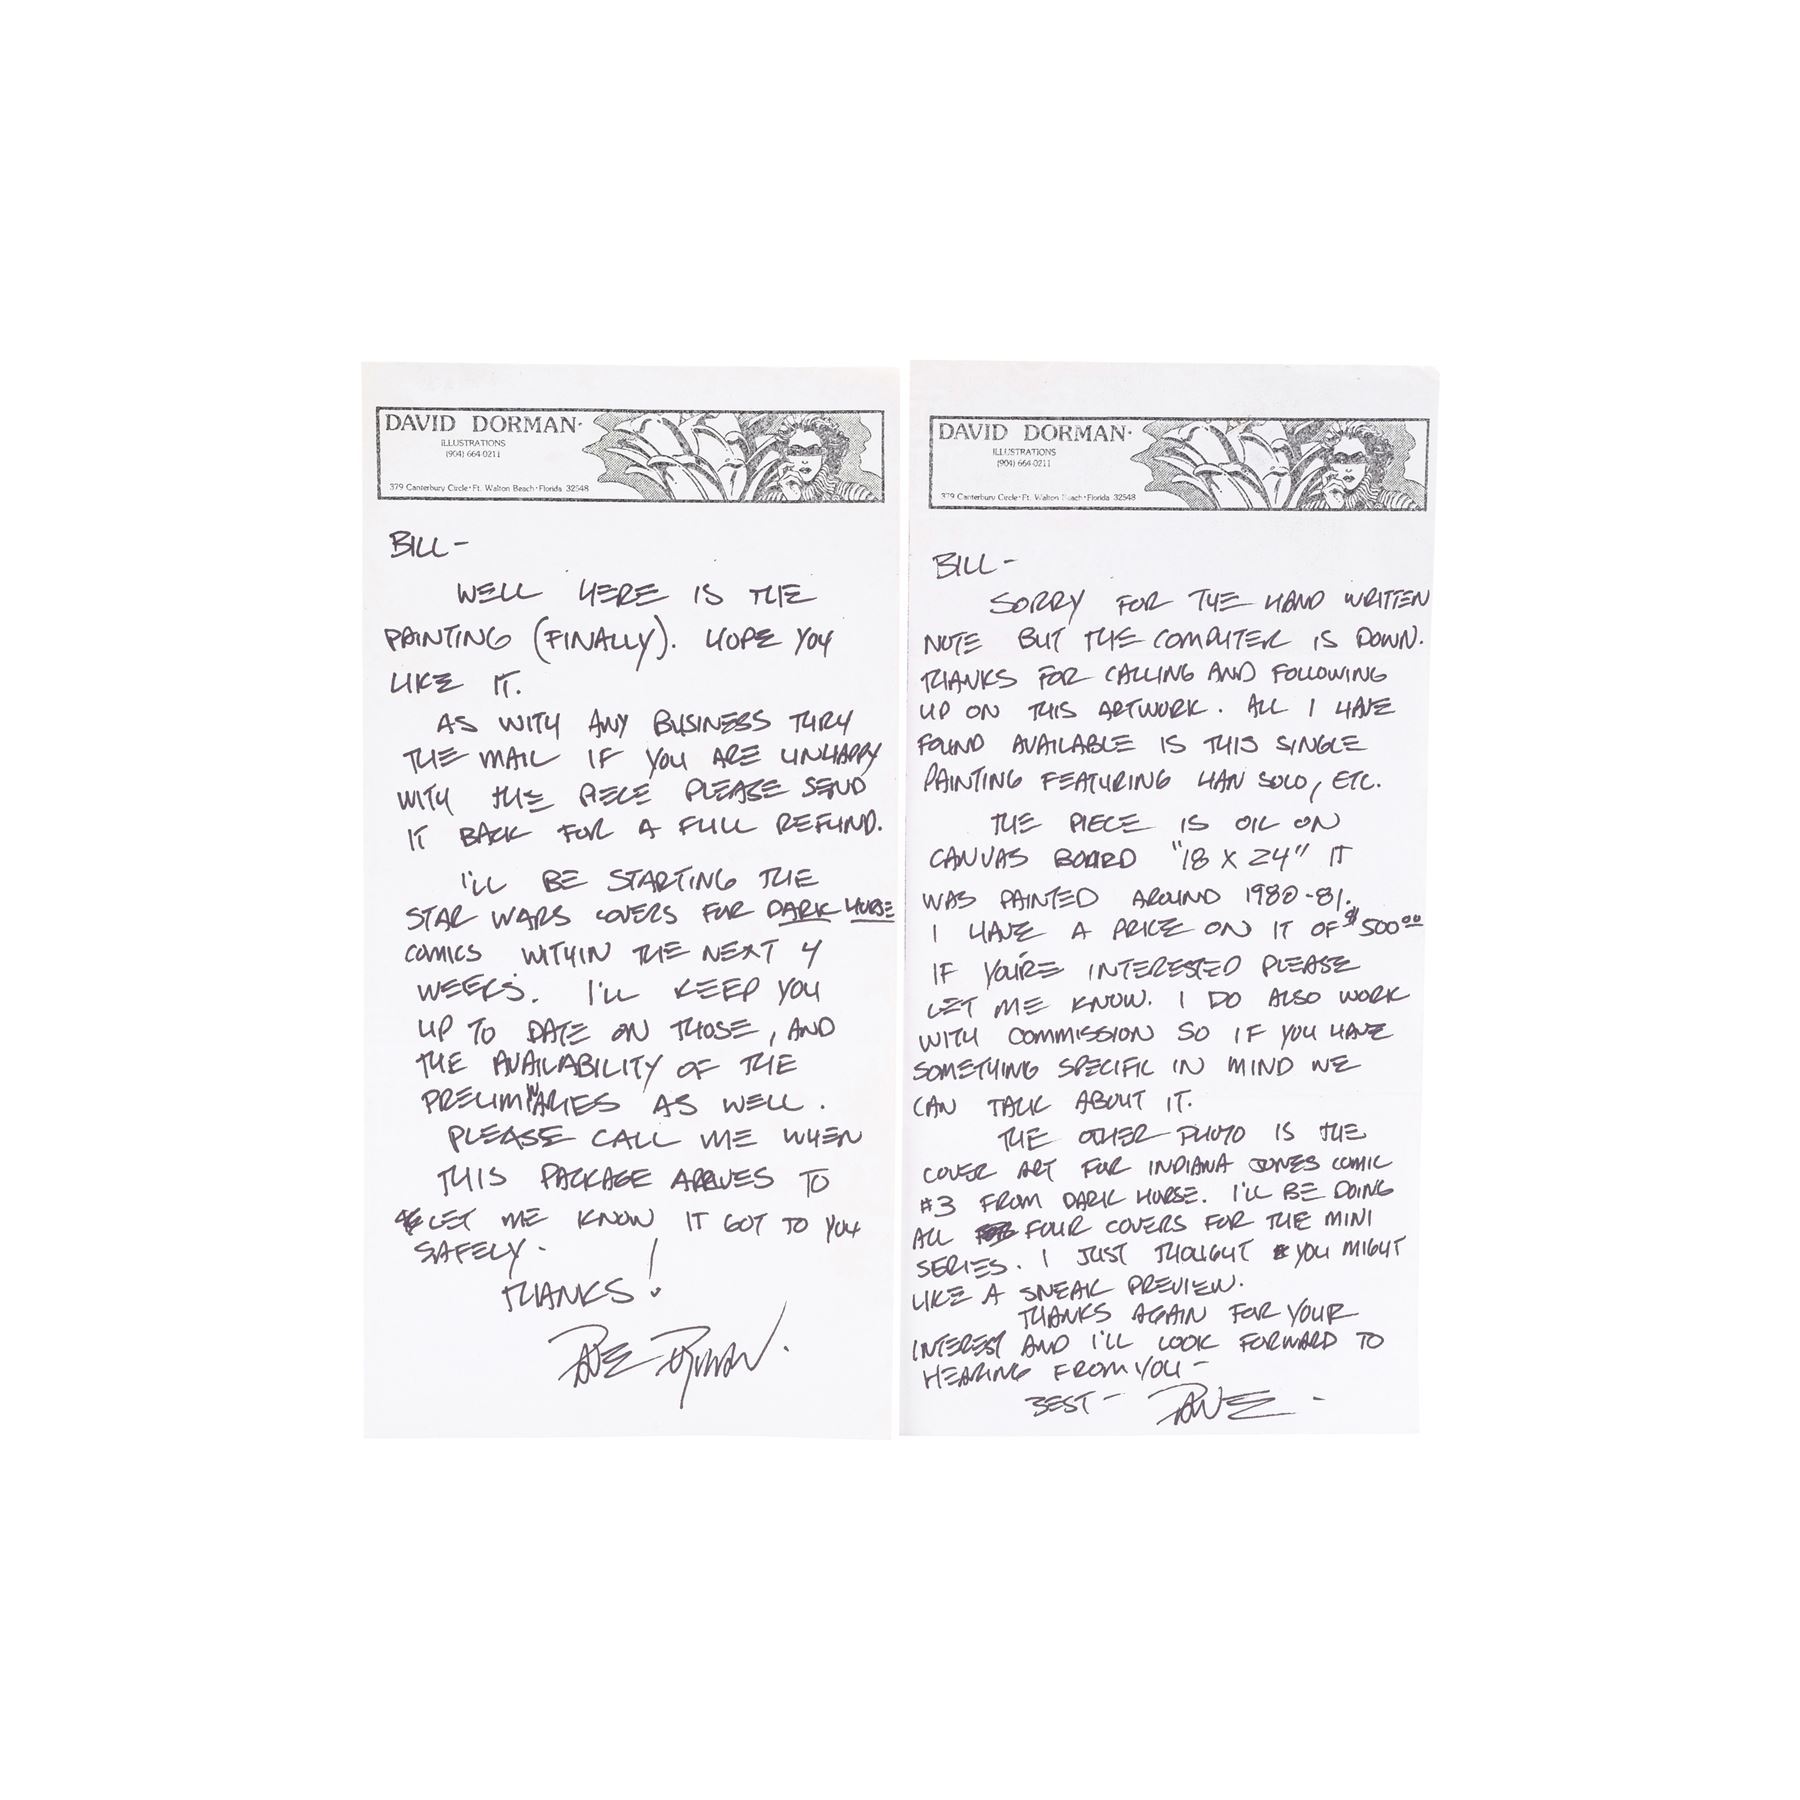 DAVID DORMAN·
ILLUSTRATIONS
(904) 664-0211
379 Canterbury Circle · Ft. Walton Beach · Florida 32548
BILL -
WELL HERE IS THE
PAINTING (FINALLY). HOPE YOU
LIKE IT.
AS WITH ANY BUSINESS THRU
THE MAIL IF YOU ARE UNHAPPY
WITH THE PIECE PLEASE SEND
IT BACK FOR A FULL REFUND.
I'LL BE STARTING THE
STAR WARS COVERS FOR DARK HORSE
COMICS WITHIN THE NEXT 4
WEEKS. I'LL KEEP YOU
UP TO DATE ON THOSE, AND
THE AVAILABILITY OF THE
PRELIMINARIES AS WELL.
PLEASE CALL ME WHEN
THIS PACKAGE ARRIVES TO
LET ME KNOW IT GOT TO YOU
SAFELY.
THANKS!
DAVE DORMAN.
DAVID DORMAN·
ILLUSTRATIONS
(904) 664-0211
379 Canterbury Circle · Ft. Walton Beach · Florida 32548
BILL -
SORRY FOR THE HAND WRITTEN
NOTE BUT THE COMPUTER IS DOWN.
THANKS FOR CALLING AND FOLLOWING
UP ON THIS ARTWORK. ALL I HAVE
FOUND AVAILABLE IS THIS SINGLE
PAINTING FEATURING HAN SOLO, ETC.
THE PIECE IS OIL ON
CANVAS BOARD "18 X 24" IT
WAS PAINTED AROUND 1980-81.
I HAVE A PRICE ON IT OF $500.00
IF YOU'RE INTERESTED PLEASE
LET ME KNOW. I DO ALSO WORK
WITH COMMISSION SO IF YOU HAVE
SOMETHING SPECIFIC IN MIND WE
CAN TALK ABOUT IT.
THE OTHER PHOTO IS THE
COVER ART FOR INDIANA JONES COMIC
#3 FROM DARK HORSE. I'LL BE DOING
ALL FOUR COVERS FOR THE MINI
SERIES. I JUST THOUGHT YOU MIGHT
LIKE A SNEAK PREVIEW.
THANKS AGAIN FOR YOUR
INTEREST AND I'LL LOOK FORWARD TO
HEARING FROM YOU -
BEST - DAVE -